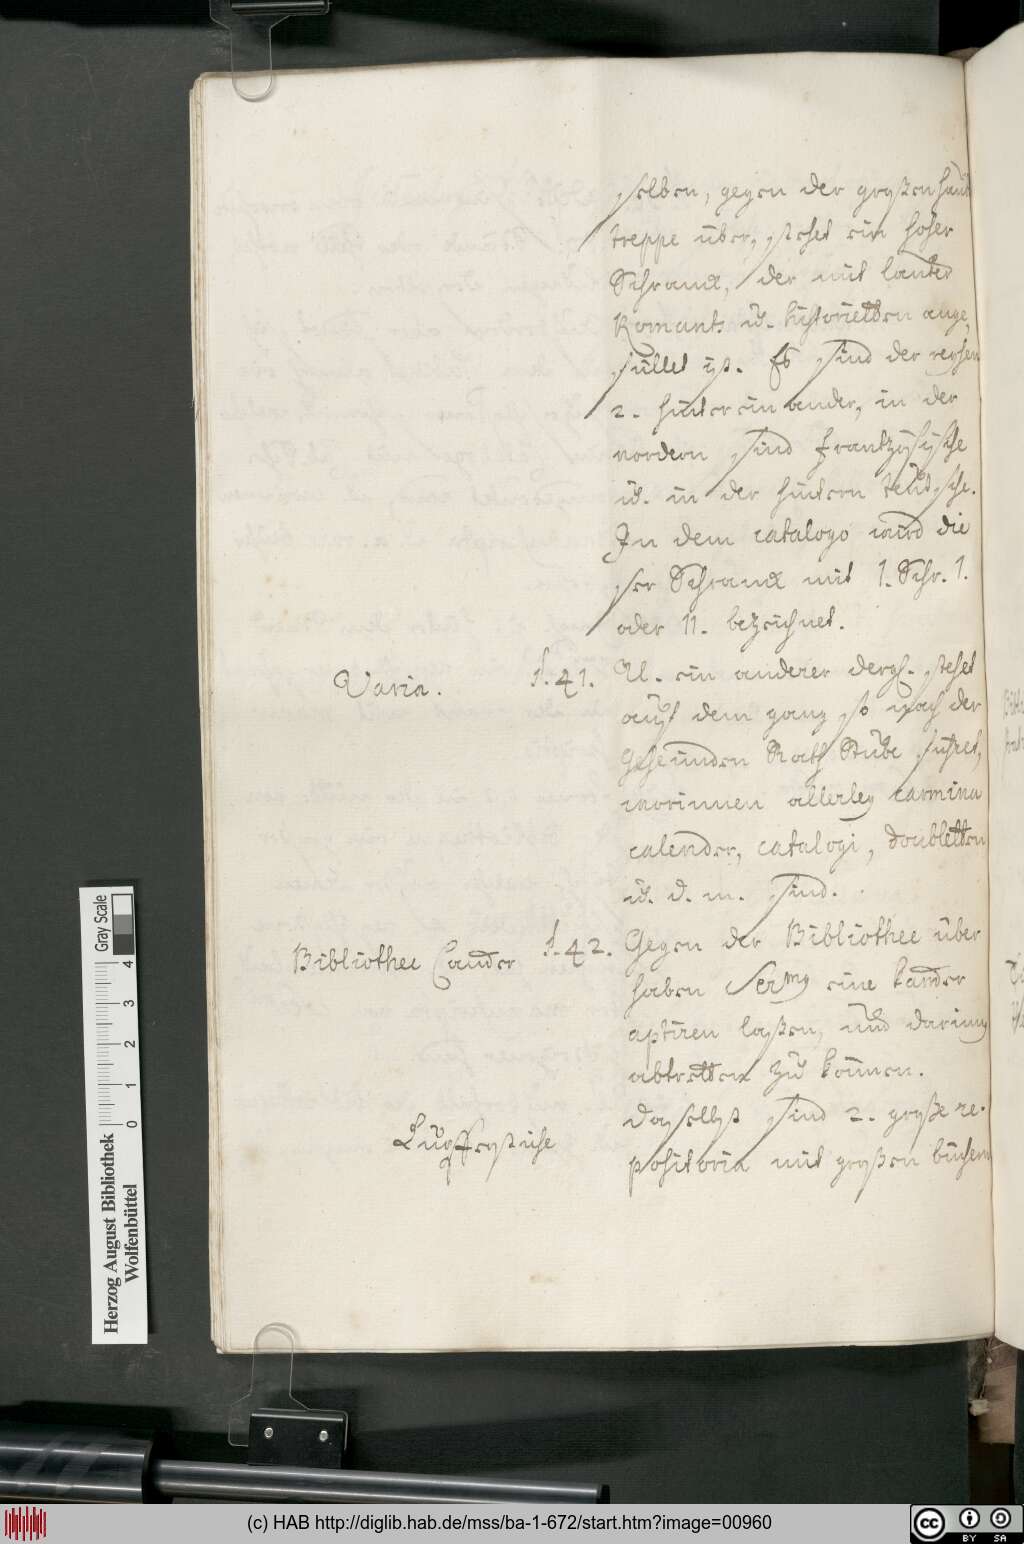 selben, gegen der großen haubt
treppe über, stehet ein hoher
Schranck, der mit lauter
Romants u. historietten ange,
füllet ist. Es sind der reyhen
2. hinter einander, in der
vordern sind Frantzösische
u. in der hintern teutsche.
In dem catalogo wird die
ser Schranck mit 1. Schr. 1.
oder 11. bezeichnet.
Varia. §. 41. U. ein anderer dergl. stehet
auf dem gang so nach der
Geheimden Rath Stube führet,
worinnen allerley carmina
calender, catalogi, doubletten
u. d. m. sind.
Bibliothec Cander §. 42. Gegen der Bibliothec über
haben Sermg eine kander
aptiren laßen, und darinn
abtretten zu können.
Kupfferstiche daselbst sind 2. große re-
positoria mit großen büchern
Herzog August Bibliothek
Wolfenbüttel
0 1 2 3 4
Gray Scale
(c) HAB http://diglib.hab.de/mss/ba-1-672/start.htm?image=00960
cc BY SA